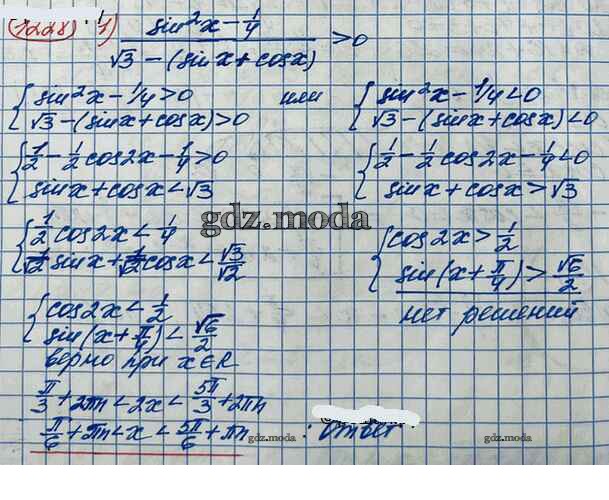 1228) 1) (sin²x - 1/4) / (√3 - (sinx + cosx)) > 0
{ sin²x - 1/4 > 0
√3 - (sinx + cosx) > 0
или
{ sin²x - 1/4 < 0
√3 - (sinx + cosx) < 0
{ 1/2 - 1/2 cos2x - 1/4 > 0
sinx + cosx < √3
{ 1/2 - 1/2 cos2x - 1/4 < 0
sinx + cosx > √3
gdz.moda
{ 1/2 cos2x < 1/4
1/√2 sinx + 1/√2 cosx < √3/√2
{ cos2x > 1/2
sin(x + π/4) > √6/2
нет решений
{ cos2x < 1/2
sin(x + π/4) < √6/2
верно при x∈R
π/3 + 2πn < 2x < 5π/3 + 2πn
π/6 + πn < x < 5π/6 + πn
gdz.moda
· Ответ
gdz.moda